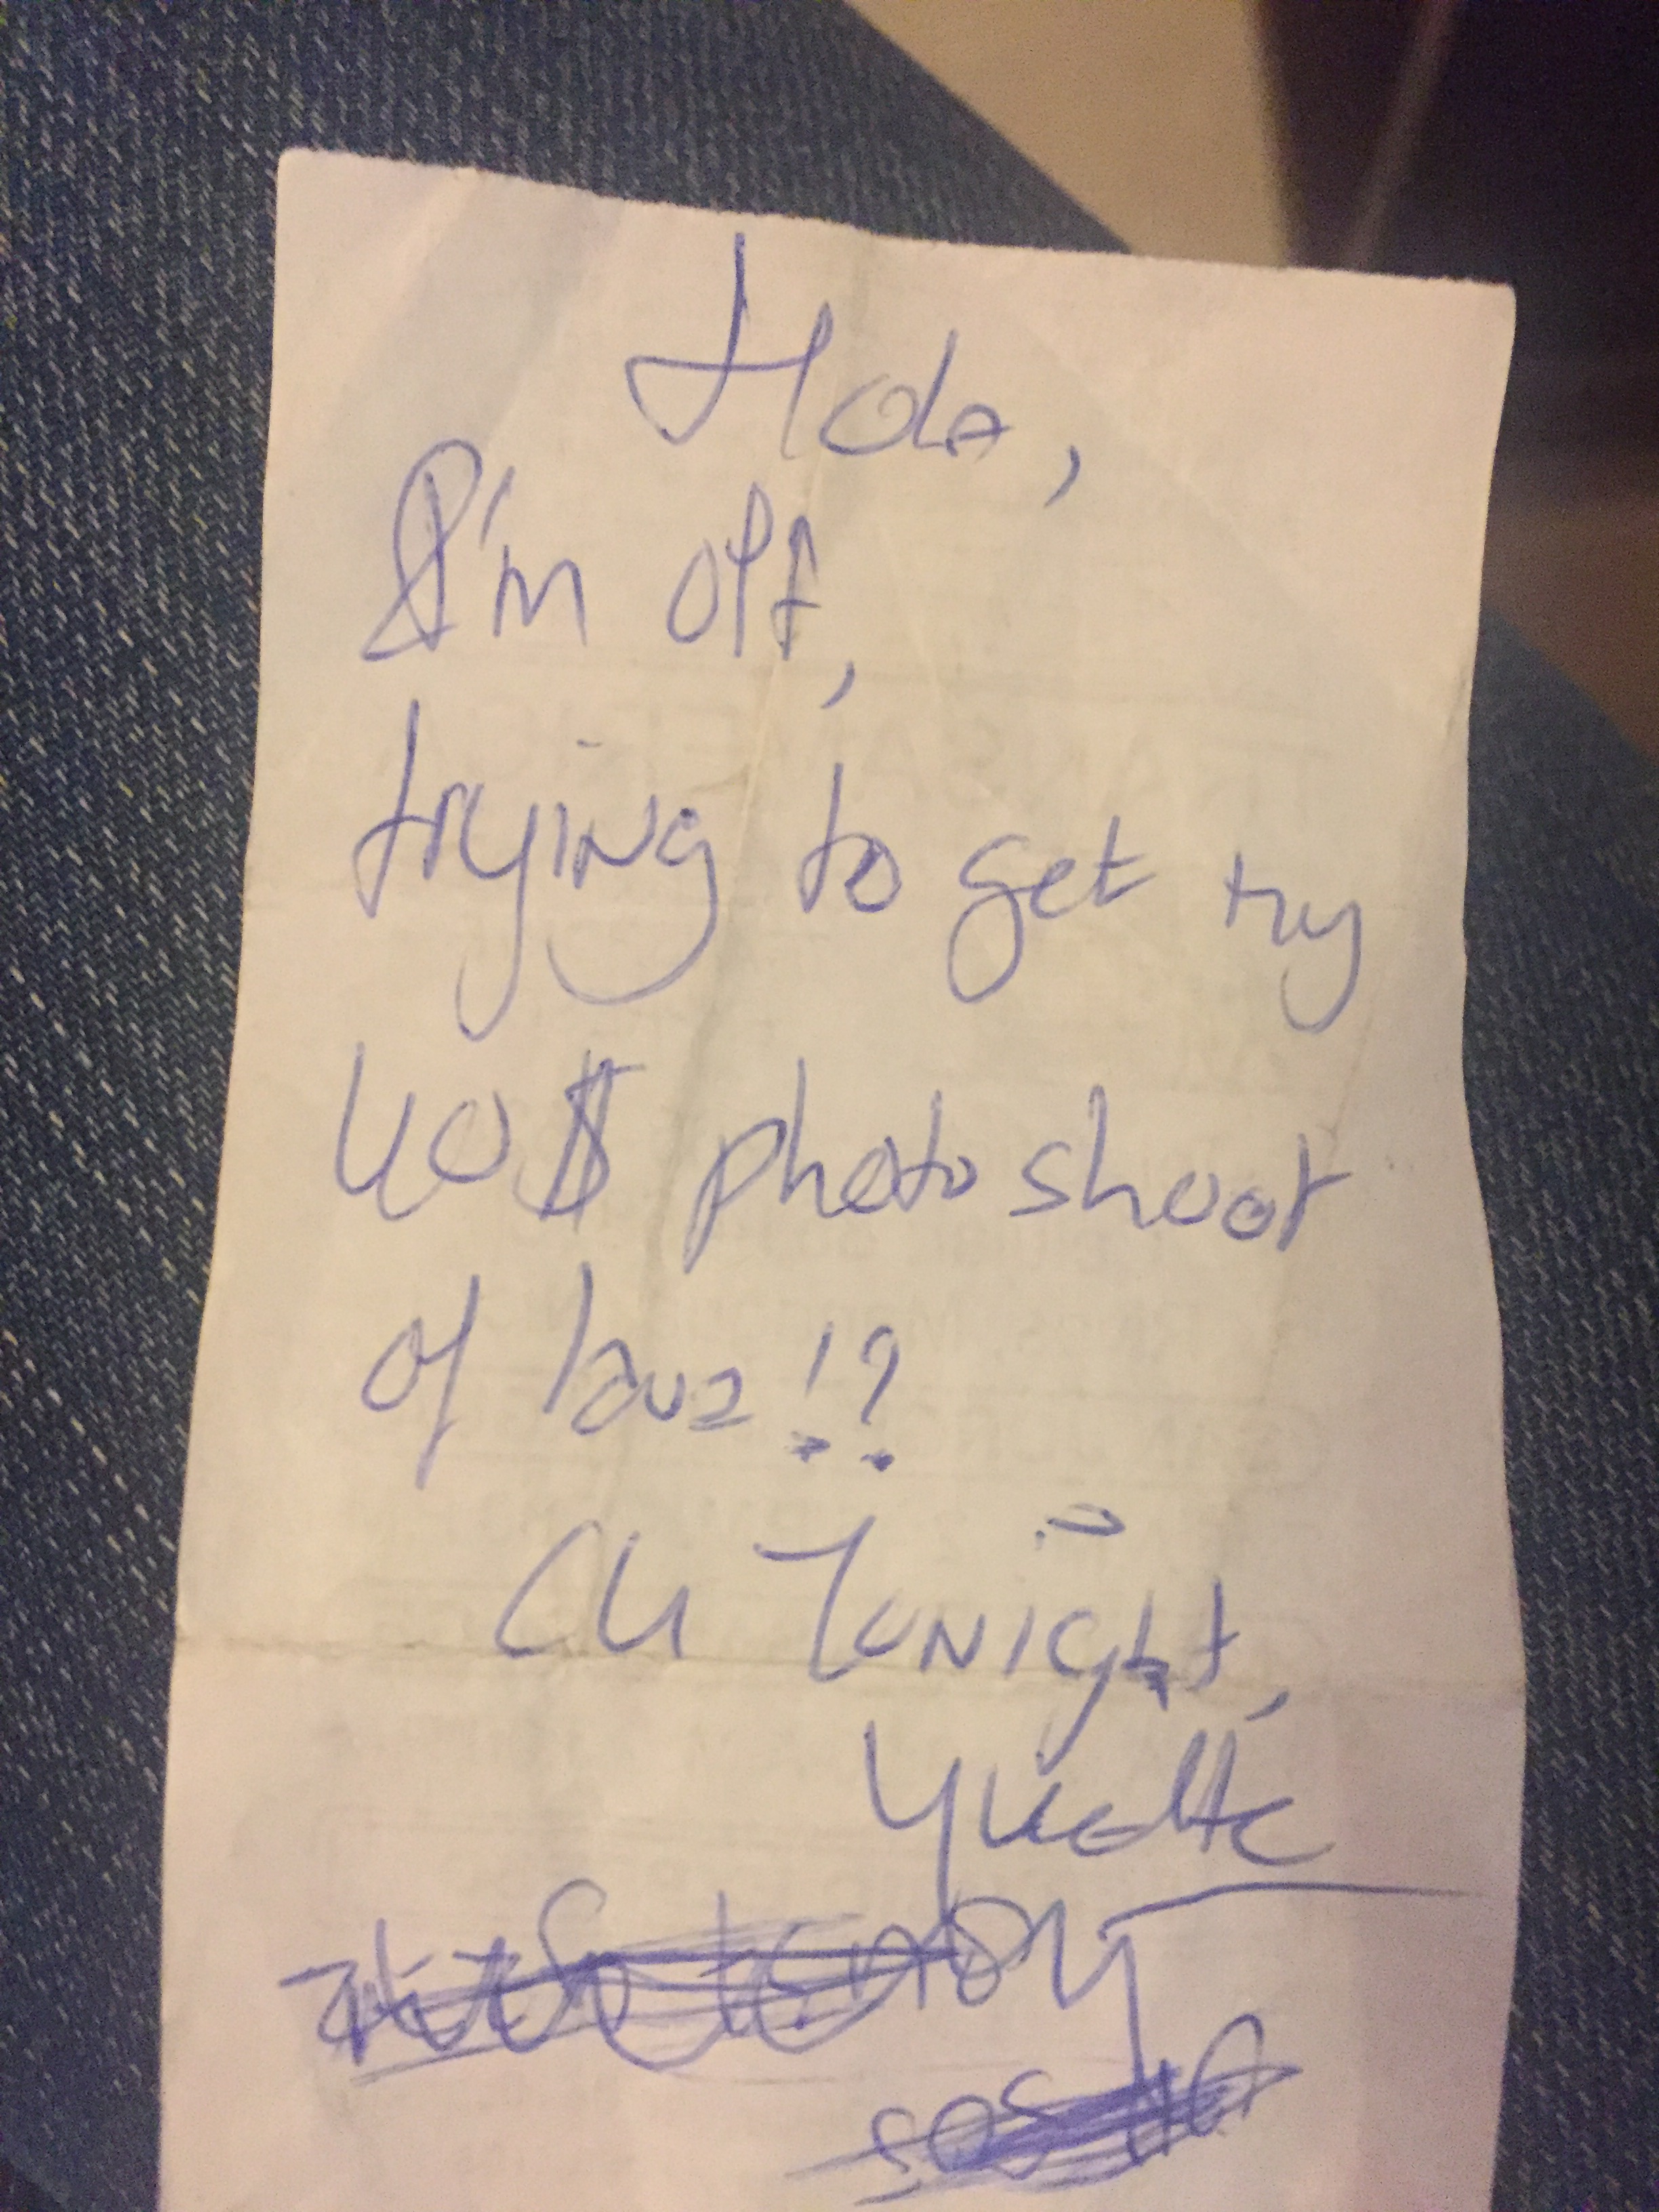 Hola,
I'm off,
trying to get my
40$ photo shoot
of lava!?
CU Tonight,
Yvette